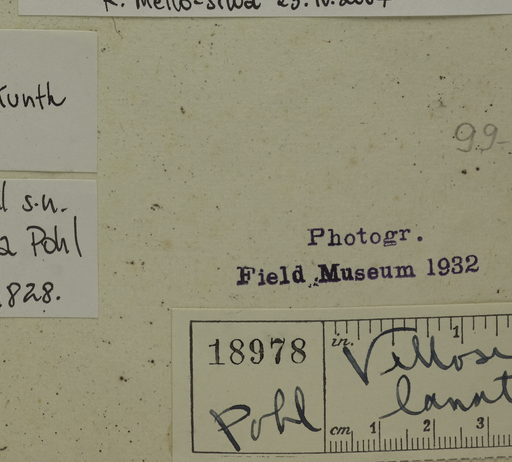 R. Mello-Silva 23.IV.2007
Kunth
s.n.
Pohl
1828.
99-
Photogr.
Field Museum 1932
18978
Pohl
in. 1
cm 1 2 3